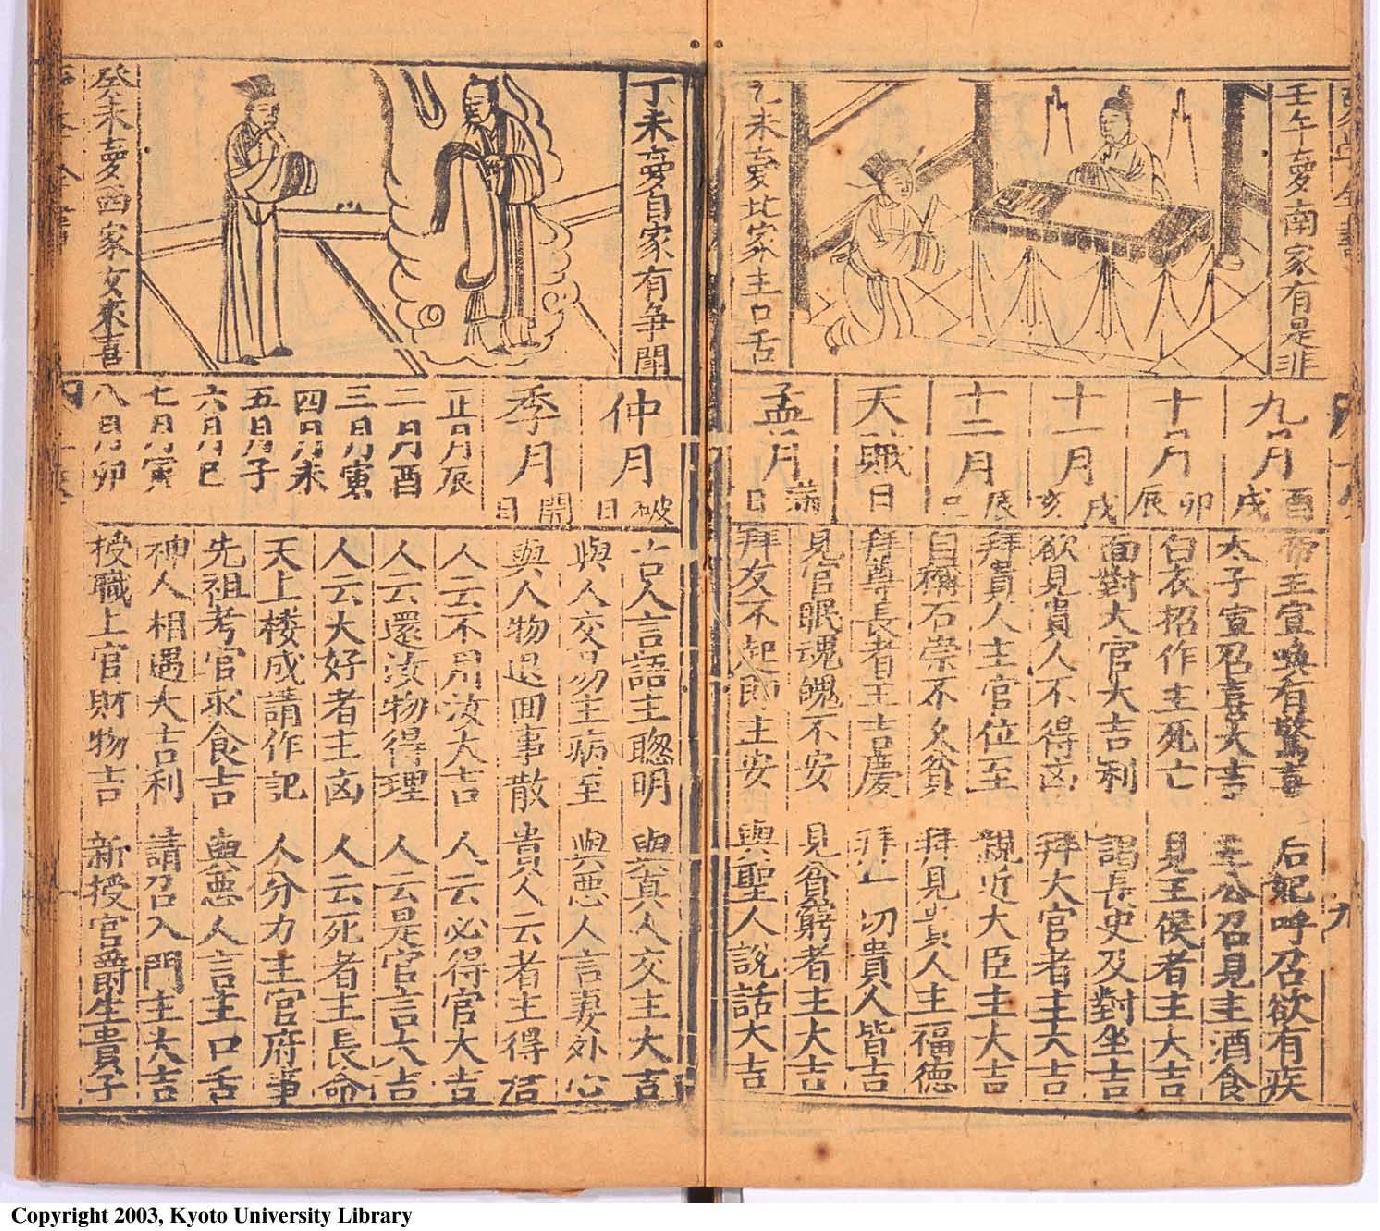 壬午夢南家有是非
乙未夢北家主口舌
九月
酉
戌
十月
卯
辰
十一月
戌
亥
十二月
辰
巳
天賊
日
孟月
滿
日
帝王宣喚有驚喜
后妃呼召欲有疾
太子宣召喜大吉
王公召見主酒食
白衣招作主死亡
見王侯者主大吉
面對大官大吉利
謁長史及對坐吉
欲見貴人不得凶
拜大官者主大吉
拜貴人主官位至
親近大臣主大吉
自稱石崇不久貧
拜見貴人主福德
拜尊長者主吉慶
拜一切貴人皆吉
見官眠魂魄不安
見貧窮者主大吉
拜友不起即主安
與聖人說話大吉
丁未夢自家有爭鬧
癸未夢西家文來喜
仲月
破
日
季月
開
日
正月辰
二月酉
三月寅
四月未
五月子
六月巳
七月寅
八月卯
古人言語主聰明
與真人交主大吉
與人交易主病至
與惡人言妻外心
與人物退回事散
貴人云者主得活
人云不用汝大吉
人云必得官大吉
人云還汝物得理
人云是官言大吉
人云大好者主凶
人云死者主長命
天上楼成請作記
人分力主官府事
先祖考官求食吉
與惡人言主口舌
神人相遇大吉利
請召入門主大吉
授職上官財物吉
新授官爵生貴子
Copyright 2003, Kyoto University Library